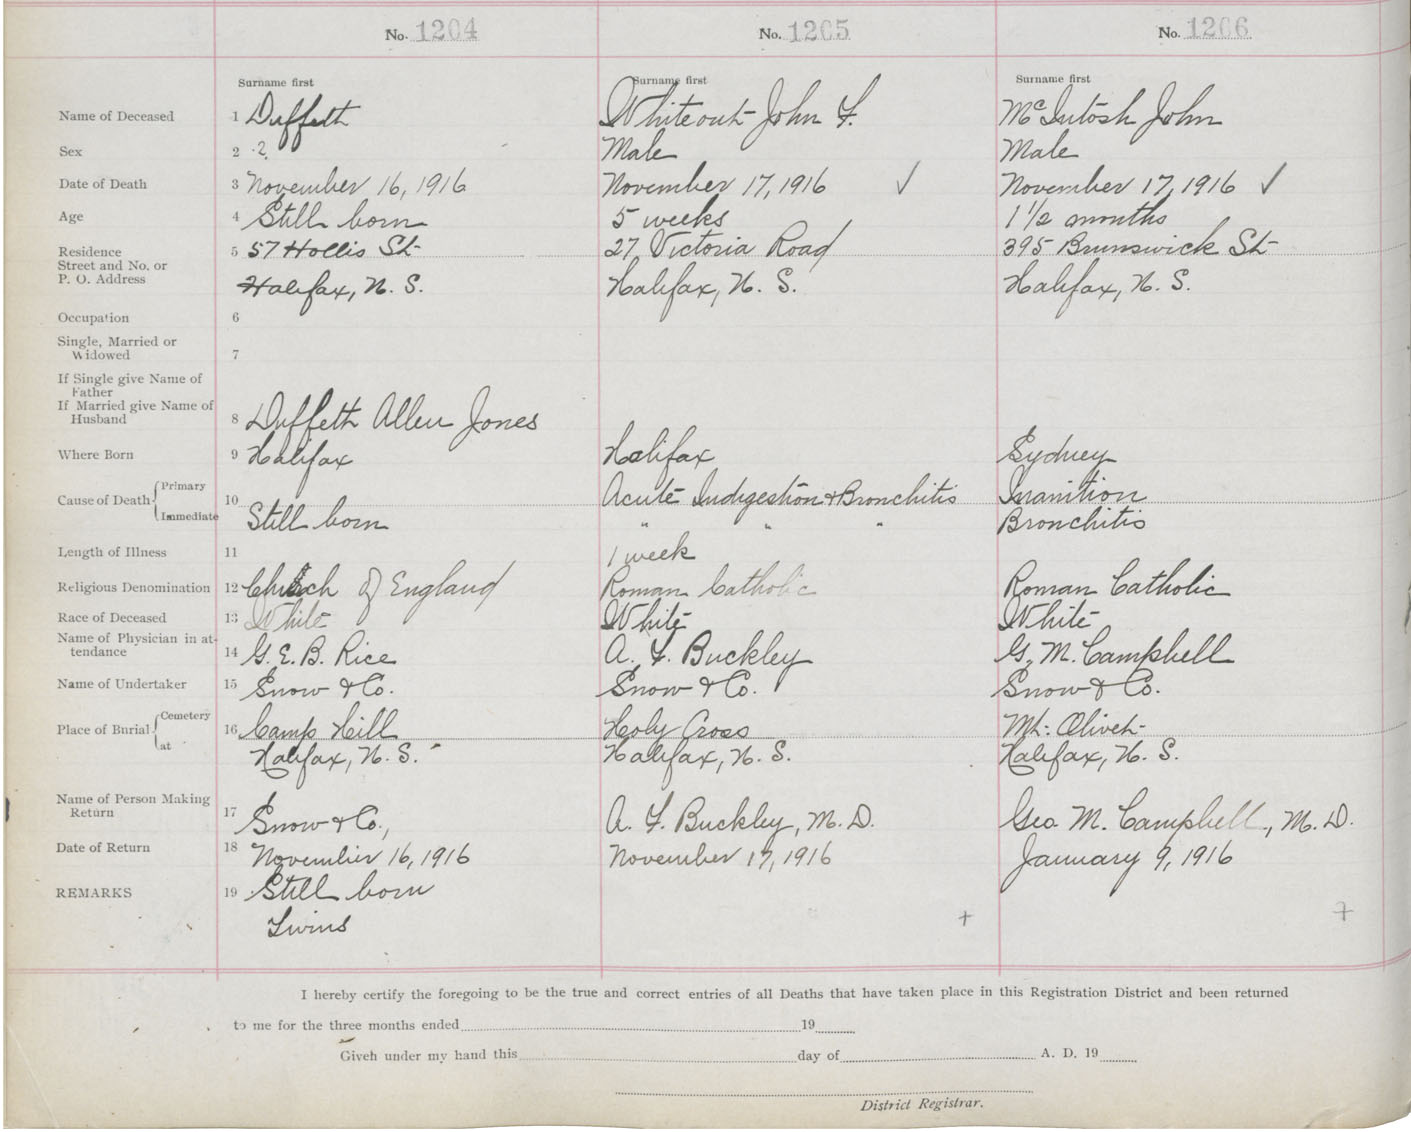 No. 1204
No. 1205
No. 1206
Surname first
Surname first
Surname first
Name of Deceased 1 Duffeth Whiteout John F. McIntosh John
Sex 2 ? Male Male
Date of Death 3 November 16, 1916 November 17, 1916 ✓ November 17, 1916 ✓
Age 4 Still born 5 weeks 1 1/2 months
Residence 5 57 Hollis St 27 Victoria Road 395 Brunswick St
Street and No. or
P. O. Address Halifax, N. S. Halifax, N. S. Halifax, N. S.
Occupation 6
Single, Married or
Widowed 7
If Single give Name of
Father
If Married give Name of
Husband 8 Duffeth Allen Jones
Where Born 9 Halifax Halifax Sydney
Cause of Death Primary 10 Acute Indigestion & Bronchitis Inanition
Immediate Still born " " " Bronchitis
Length of Illness 11 1 week
Religious Denomination 12 Church of England Roman Catholic Roman Catholic
Race of Deceased 13 White White White
Name of Physician in at-
tendance 14 G. E. B. Rice A. F. Buckley G. M. Campbell
Name of Undertaker 15 Snow & Co. Snow & Co. Snow & Co.
Place of Burial Cemetery 16 Camp Hill Holy Cross Mt. Olivet
at Halifax, N. S. Halifax, N. S. Halifax, N. S.
Name of Person Making
Return 17 Snow & Co., A. F. Buckley, M. D. Geo. M. Campbell, M. D.
Date of Return 18 November 16, 1916 November 17, 1916 January 9, 1916
REMARKS 19 Still born
Twins
I hereby certify the foregoing to be the true and correct entries of all Deaths that have taken place in this Registration District and been returned
to me for the three months ended 19
Given under my hand this day of A. D. 19
District Registrar.